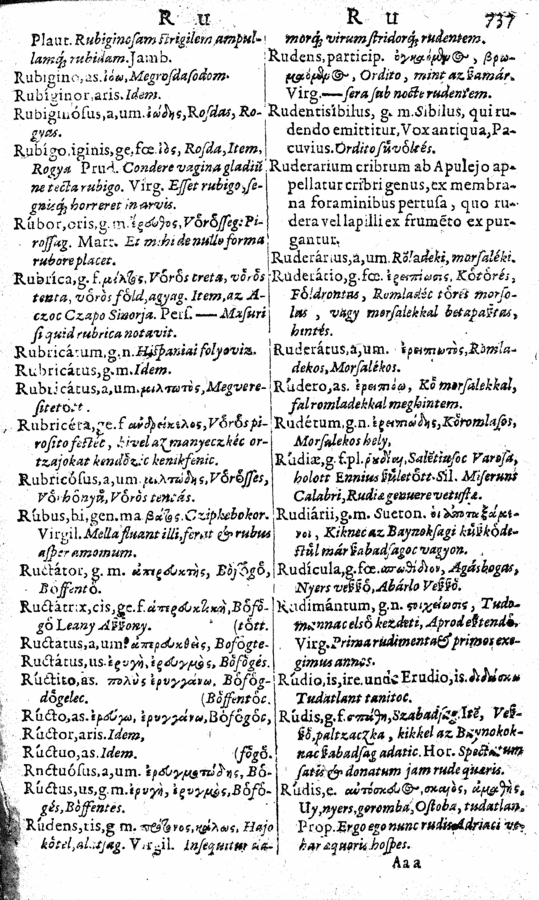 R u
R u 737
Plaut. Rubiginosam strigilem ampul-
lamq; rubidam. Jamb.
Rubigino, as. ἰόω, Megrosdasodom.
Rubiginor, aris. Idem.
Rubiginósus, a, um. ἰώδης, Rosdas, Ro-
gyas.
Rubígo, iginis, ge, fœ. ἰὸς, Rosda, Item,
Rogya Prud. Condere vagina gladiũ
ne tecta rubigo. Virg. Esset rubigo, se-
gnisq; horreret in arvis.
Rúbor, oris, g. m. Vo̊ro̊sseg: Pi-
rossag. Mart. Et mihi de nullo forma
rubore placet.
Rubríca, g. f. μίλτος, Vo̊ro̊s creta, vo̊ro̊s
tenta, vo̊ro̊s fo̊ld, agyag. Item, az A-
czoc Czapo Sinorja. Pers. — Masuri
si quid rubrica notavit.
Rubricatum, g. n. Hispaniai folyoviz.
Rubricatus, g. m. Idem.
Rubricatus, a, um. μιλτωτὸς, Megvere-
sitetо̊tt.
Rubricéta, ge, f. Vo̊ro̊s pi-
rosito festéc, kivel az manyeczkéc or-
tzajokat kendo̊zic kenikfenic.
Rubricósus, a, um. μιλτώδης, Vo̊ro̊sses,
Vo̊ro̊s tentás.
Rúbus, bi, gen. ma. βάτος. Czipkebokor.
Virgil. Mella fluant illi, ferat & rubus
asper amomum.
Ructátor, g. m. Bo̊fo̊go̊,
Bo̊ffento̊.
Ructatrix, cis, ge, f. Bo̊fo̊-
go̊ Leany Aßßony. (to̊tt.
Ructatus, a, um. Bo̊fo̊gte-
Ructátus, us. ἐρυγὴ, ἐρυγμὸς, Bo̊fo̊gés.
Ructito, as. πολὺς ἐρυγγάνω. Bo̊fo̊g-
do̊gelec. (Bo̊ffento̊c.
Rúcto, as. ἐρεύγω, ἐρυγγάνω, Bo̊fo̊go̊c,
Rúctor, aris. Idem,
Rúctuo, as. Idem. (fo̊go̊.
Ructuósus, a, um. ἐρευγματώδης, Bo̊-
Rúctus, us, g. m. ἐρυγὴ, ἐρυγμὸς, Bo̊fo̊-
gés, Bo̊ffentes.
Rúdens, tis, g m. Hajo
ko̊tel, alatsag. Virgil. Insequitur cla-
morq; virum stridorq; rudentem.
Rudens, particip. Ordito, mint az ßamár.
Virg. — sera sub nocte rudentem.
Rudentisíbilus, g. m. Sibilus, qui ru-
dendo emittitur, Vox antiqua, Pa-
cuvius. Ordito su̇vo̊ltés.
Ruderarium cribrum ab Apulejo ap-
pellatur cribri genus, ex membra-
na foraminibus pertusa, quo ru-
dera vel lapilli ex frumẽto ex pur-
gantur.
Ruderárius, a, um. Ro̊ladeki, morsaléki.
Ruderátio, g. fœ. ἐρείπωσις, Ko̊to̊rés,
Fo̊ldrontas, Romladéc to̊rés morso-
las, vagy morsalekkal betapaßtas,
hintés.
Ruderátus, a, um. ἐρειπωτὸς, Ro̊mla-
dekos, Morsalékos.
Rúdero, as. ἐρειπόω, Ko̊ morsalekkal,
fal romladekkal meghintem.
Rudétum, g. n. ἐρειπώδης, Ko̊romlasos,
Morsalekos hely,
Rúdiæ, g. f. pl. Saletiusoc Varosa,
holott Ennius ßu̇leto̊tt. Sil. Miserunt
Calabri, Rudiæ genuere vetustæ.
Rudiárii, g. m. Sueton.
Kiknec az Baynoksagi ku̇ßko̊de-
stu̇l már ßabadságoc vagyon.
Rudícula, g. fœ. Agáshogas,
Nyers veßßo̊, Abárlo Veßßo̊.
Rudimántum, g. n. Tudo-
mannac elso̊ kezdeti, Aprod eßtendo̊.
Virg. Prima rudimenta & primos exe-
gimus annos.
Rúdio, is, ire. unde Erudio, is. διδάσκω
Tudatlant tanitoc.
Rúdis, g. f. σπάθη, Szabadság. Itẽ, Veß-
ßo̊, paltzaczka, kikkel az Baynokok-
nac ßabadsag adatic. Hor. Spectatum
satis & donatum jam rude quæris.
Rúdis, e. σκαιὸς, ἀμαθὴς,
Uy, nyers, goromba, Ostoba, tudatlan.
Prop. Ergo ego nunc rudis Adriaci ve-
har æquoris hospes.
Aaa